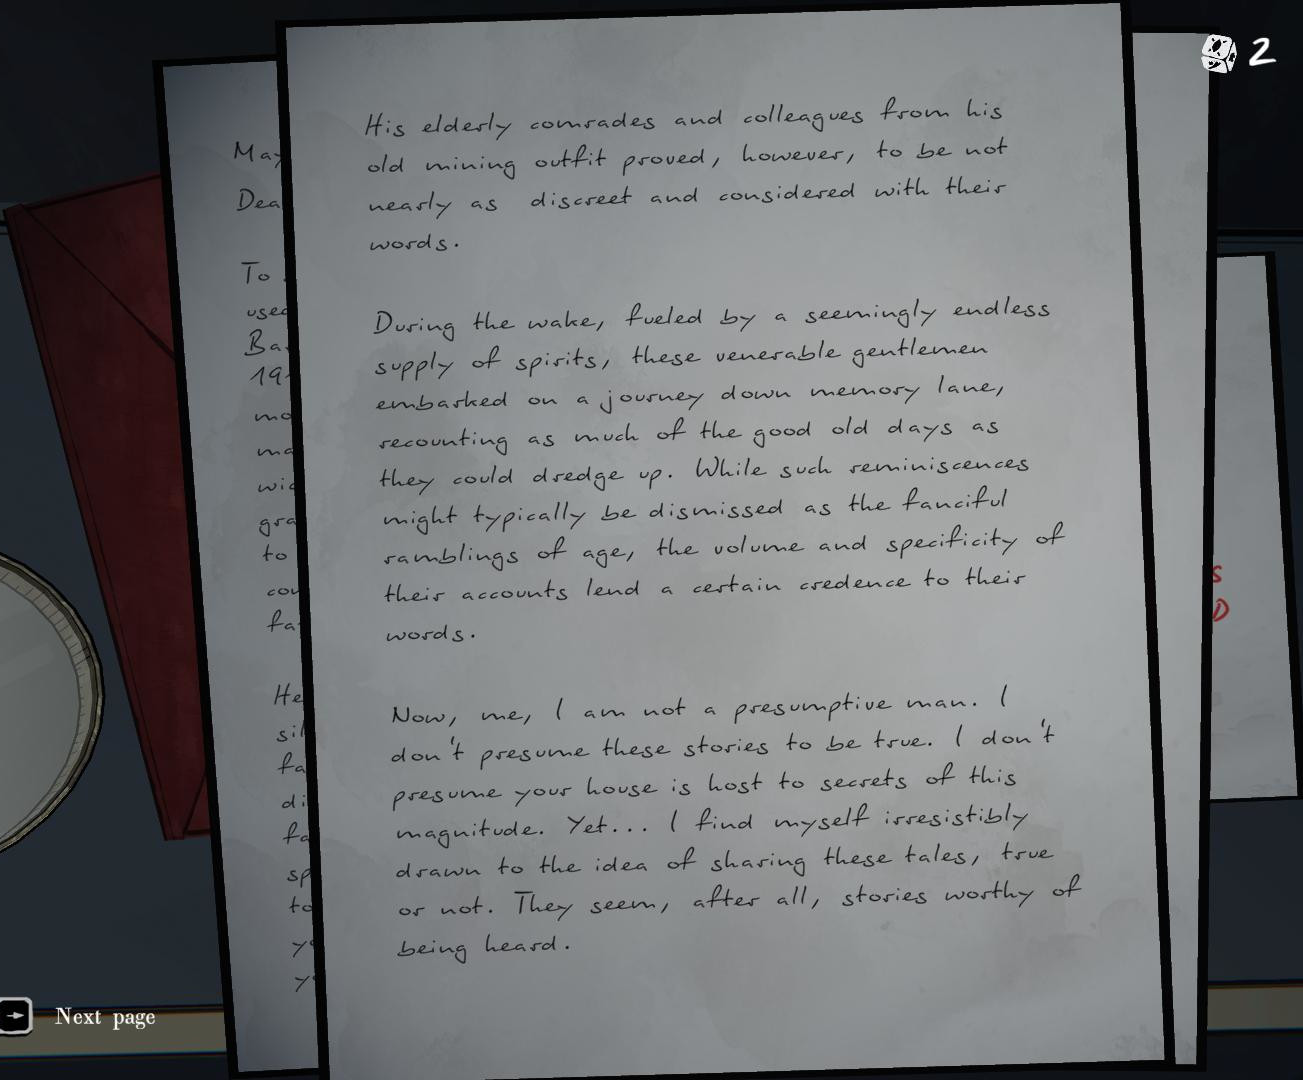 2
His elderly comrades and colleagues from his
old mining outfit proved, however, to be not
nearly as discreet and considered with their
words.
During the wake, fueled by a seemingly endless
supply of spirits, these venerable gentlemen
embarked on a journey down memory lane,
recounting as much of the good old days as
they could dredge up. While such reminiscences
might typically be dismissed as the fanciful
ramblings of age, the volume and specificity of
their accounts lend a certain credence to their
words.
Now, me, I am not a presumptive man. I
don't presume these stories to be true. I don't
presume your house is host to secrets of this
magnitude. Yet... I find myself irresistibly
drawn to the idea of sharing these tales, true
or not. They seem, after all, stories worthy of
being heard.
To
to
He
S
D
Next page